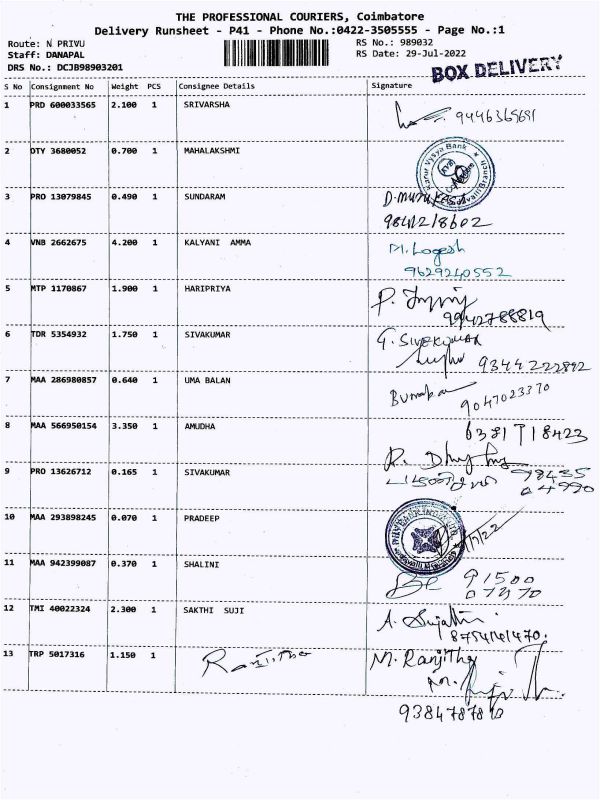 THE PROFESSIONAL COURIERS, Coimbatore
Delivery Runsheet - P41 - Phone No.:0422-3505555 - Page No.:1
Route: N PRIVU RS No.: 989032
Staff: DANAPAL RS Date: 29-Jul-2022
DRS No.: DCJB98903201 BOX DELIVERY
S No Consignment No Weight PCS Consignee Details Signature
1 PRD 600033565 2.100 1 SRIVARSHA
2 DTY 3680052 0.700 1 MAHALAKSHMI
Karur Vysya Bank
3 PRO 13079845 0.490 1 SUNDARAM
4 VNB 2662675 4.200 1 KALYANI AMMA M. Logesh
9629240552
5 MTP 1170867 1.900 1 HARIPRIYA
9942788819
6 TDR 5354932 1.750 1 SIVAKUMAR G. SIVAKUMAR
9344222892
7 MAA 286980857 0.640 1 UMA BALAN
9047023370
8 MAA 566950154 3.350 1 AMUDHA
9 PRO 13626712 0.165 1 SIVAKUMAR 98435
04990
10 MAA 293898245 0.070 1 PRADEEP
11 MAA 942399087 0.370 1 SHALINI
91500
07370
12 TMI 40022324 2.300 1 SAKTHI SUJI A. Sujathi
13 TRP 5017316 1.150 1 Ranjitha M. Ranjitha